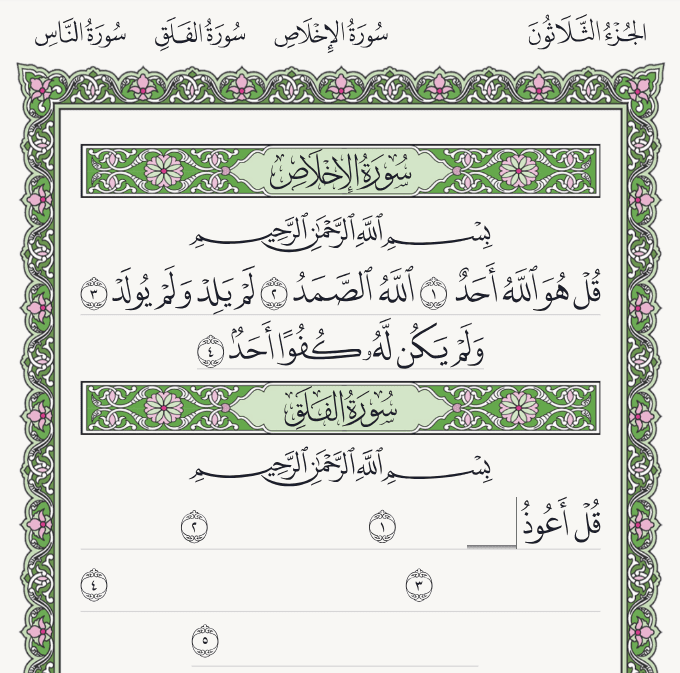 الجُزْءُ الثَّلَاثُونَ سُورَةُ الإِخْلَاصِ سُورَةُ الفَلَقِ سُورَةُ النَّاسِ
سُورَةُ الإِخْلَاصِ
بِسْمِ ٱللَّهِ ٱلرَّحْمَٰنِ ٱلرَّحِيمِ
قُلْ هُوَ ٱللَّهُ أَحَدٌ ١ ٱللَّهُ ٱلصَّمَدُ ٢ لَمْ يَلِدْ وَلَمْ يُولَدْ ٣
وَلَمْ يَكُن لَّهُۥ كُفُوًا أَحَدٌۢ ٤
سُورَةُ الفَلَقِ
بِسْمِ ٱللَّهِ ٱلرَّحْمَٰنِ ٱلرَّحِيمِ
قُلْ أَعُوذُ ١ ٢
٣ ٤
٥